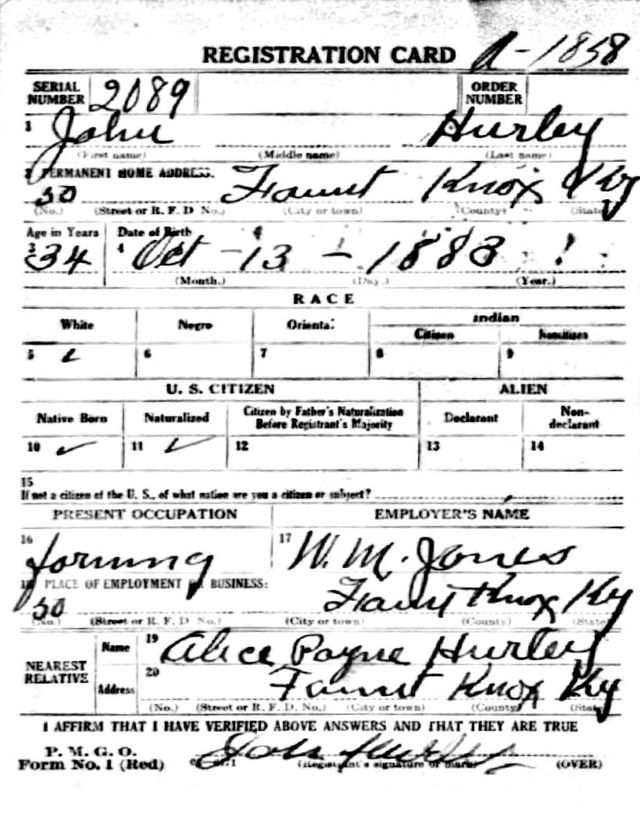 REGISTRATION CARD A-1858
SERIAL NUMBER 2089 ORDER NUMBER
1 John Hurley
(First name) (Middle name) (Last name)
2 PERMANENT HOME ADDRESS:
50 Fount Knox Ky
(No.) (Street or R. F. D No.) (City or town) (County) (State)
Age in Years Date of Birth
3 34 4 Oct - 13 - 1883
(Month.) (Day.) (Year.)
RACE
White Negro Oriental Indian
Citizen Noncitizen
5 ✓ 6 7 8 9
U. S. CITIZEN ALIEN
Native Born Naturalized Citizen by Father's Naturalization Before Registrant's Majority Declarant Non-declarant
10 ✓ 11 ✓ 12 13 14
15
If not a citizen of the U. S., of what nation are you a citizen or subject?
PRESENT OCCUPATION EMPLOYER'S NAME
16 forming 17 W. M. Jones
18 PLACE OF EMPLOYMENT OR BUSINESS:
50 Fount Knox Ky
(No.) (Street or R. F. D No.) (City or town) (County) (State)
NEAREST RELATIVE Name 19 Alice Payne Hurley
Address 20 Fount Knox Ky
(No.) (Street or R. F. D. No.) (City or town) (County) (State)
I AFFIRM THAT I HAVE VERIFIED ABOVE ANSWERS AND THAT THEY ARE TRUE
P. M. G. O.
Form No. 1 (Red) John Hurley
(Registrant's signature or mark) (OVER)